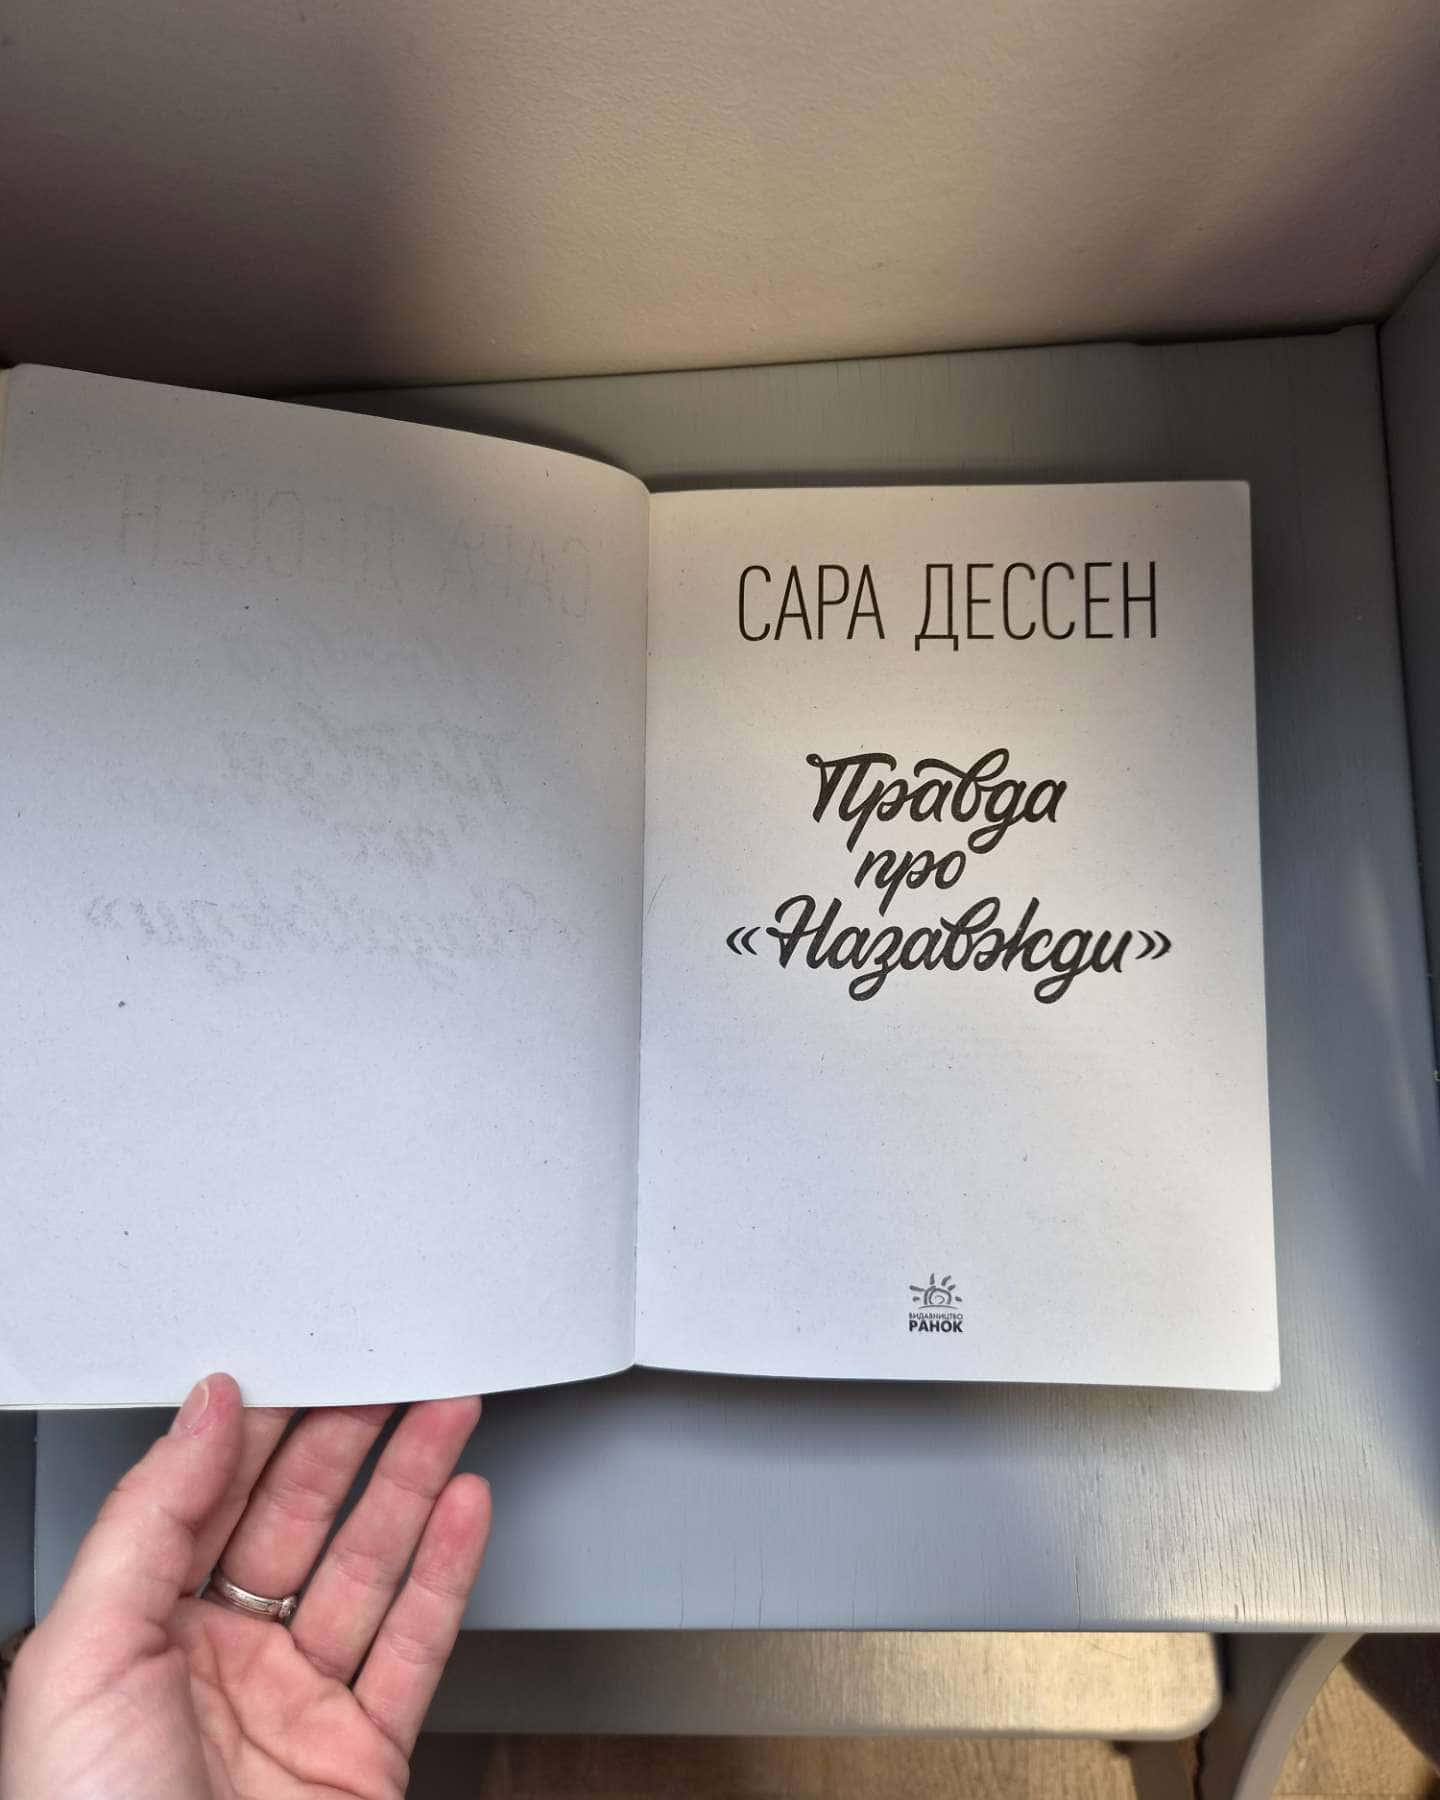 САРА ДЕССЕН
Правда
про
«Назавжди»
ВИДАВНИЦТВО
РАНОК